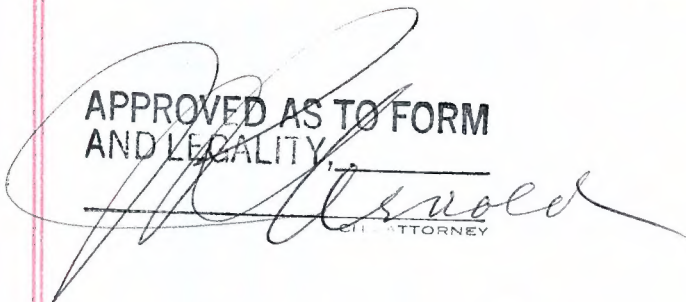 APPROVED AS TO FORM
AND LEGALITY,
Arnold
CITY ATTORNEY